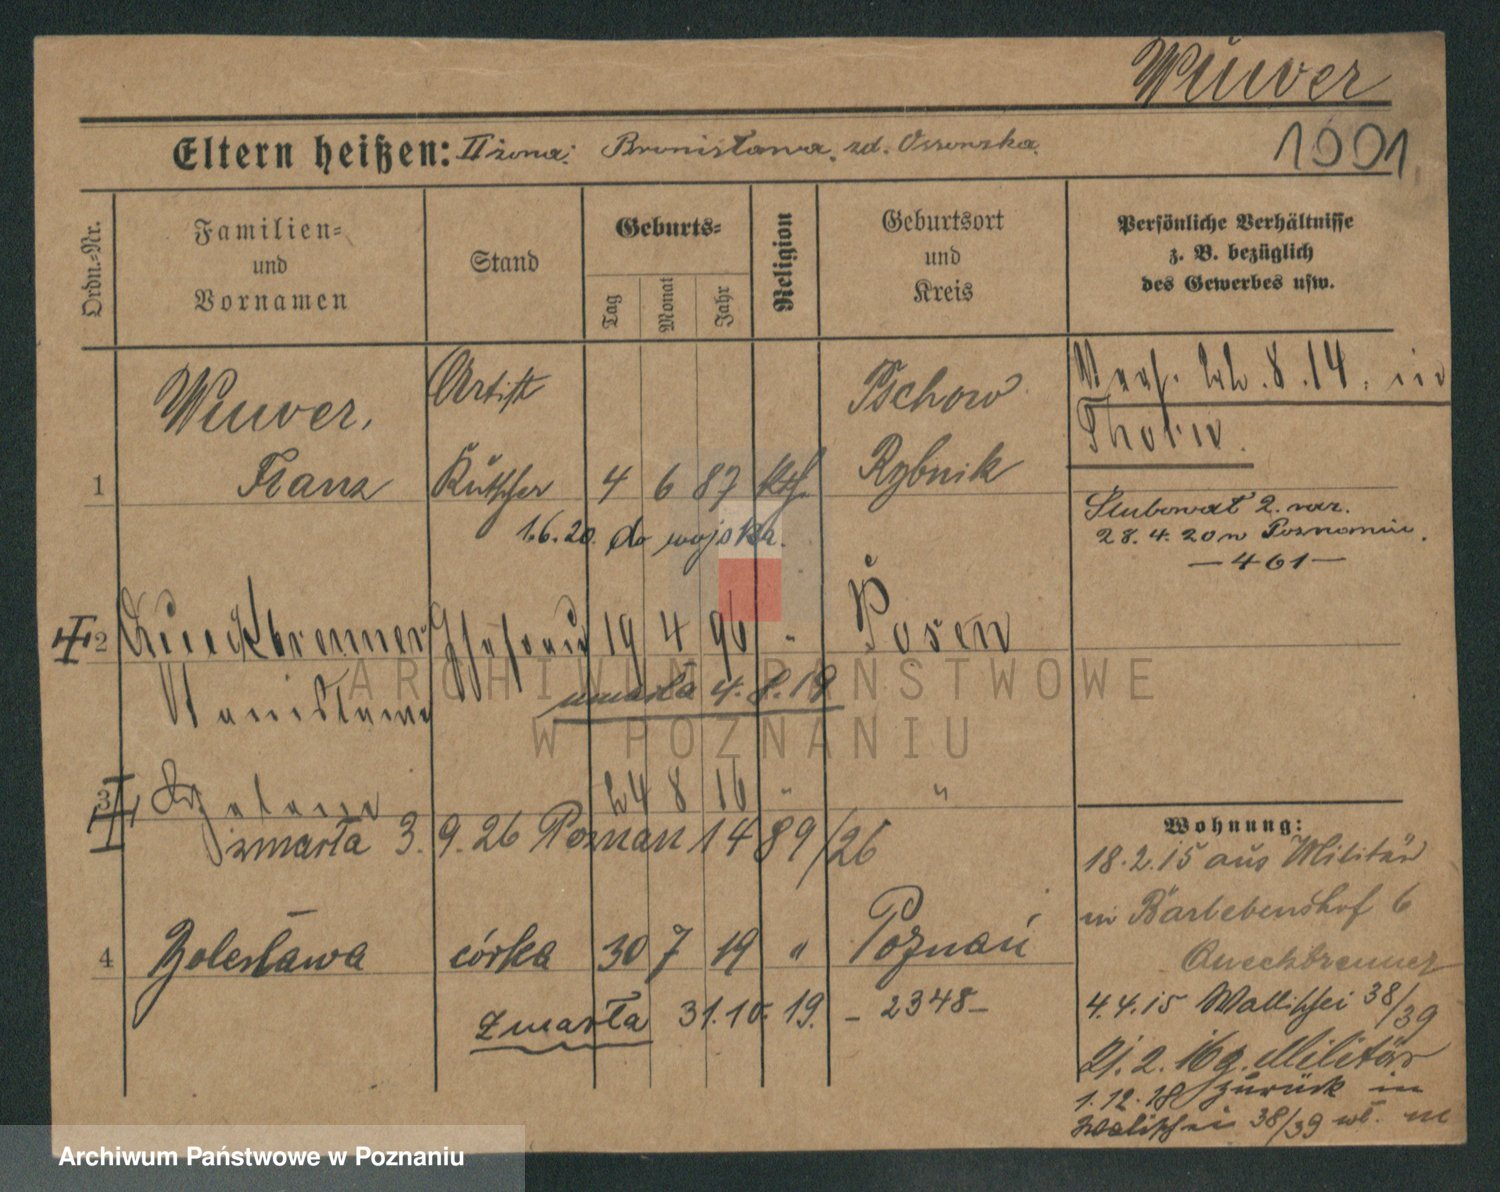 Wuwer
Eltern heißen: II żona: Bronisława, zd. Ossowska.
1001
Ordn.-Nr.
Familien-
und
Vornamen
Stand
Geburts-
Tag
Monat
Jahr
Religion
Geburtsort
und
Kreis
Persönliche Verhältnisse
z. B. bezüglich
des Gewerbes usw.
1
Wuwer,
Franz
Artist
Kutscher
4 6 87 kth.
Pschow
Rybnik
1.6.20. do wojska.
Verh. 22.8.14. in
Thorn.
Slubował 2. raz.
28.4.20 w Poznaniu.
— 461 —
2
Queckbrenner
Stanisława
Ehefrau
19 4 96 "
Posen
umarła 4.8.19
3
24 8 16 "
"
zmarła 3.9.26 Poznań 1489/26
4
Bolesława
córka
30 7 19 "
Poznań
zmarła 31.10.19. – 2348 –
Wohnung:
18.2.15 aus Militär
in Bartebendshof 6
Queckbrenner
4.4.15 Wallischei 38/39
21.2.16 z. Militär
1.12.18 zurück in
Walischei 38/39 wł. m
ARCHIWUM PAŃSTWOWE
W POZNANIU
Archiwum Państwowe w Poznaniu